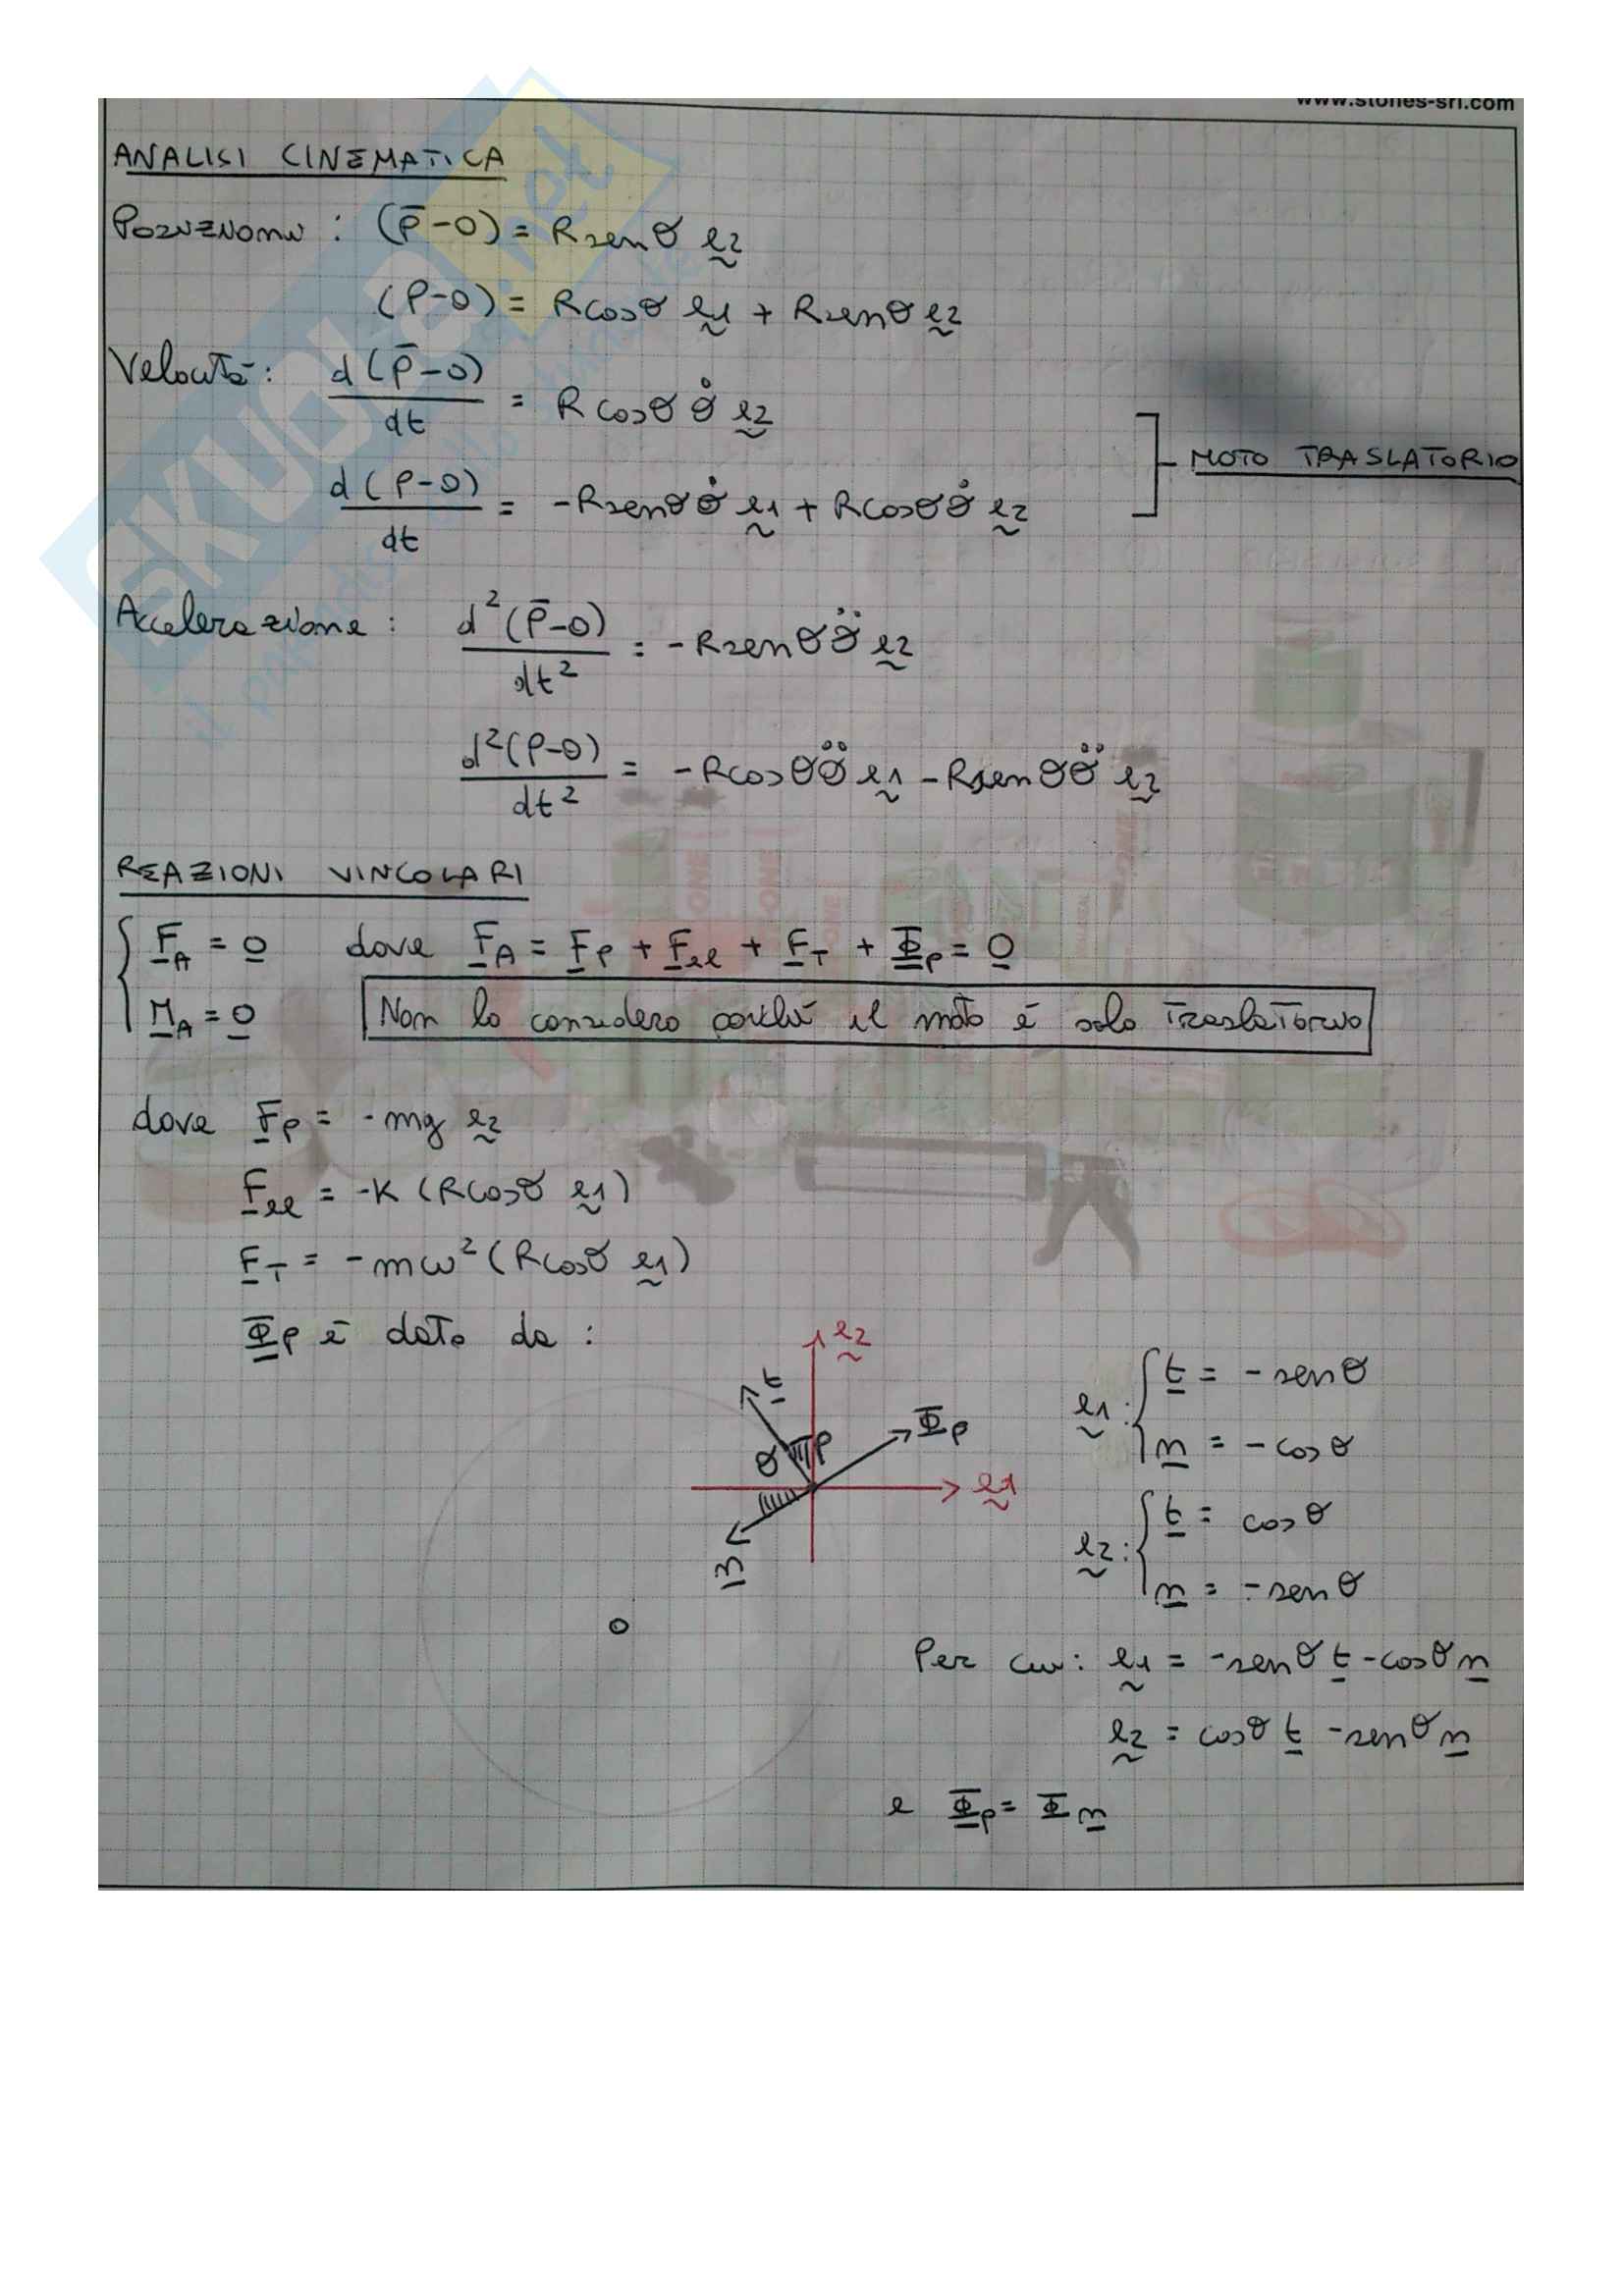 www.stones-srl.com
ANALISI CINEMATICA
Posizione : (P̄-O) = R senθ e2
(P-O) = R cosθ e1 + R senθ e2
Velocità : d(P̄-O)/dt = R cosθ θ̇ e2
d(P-O)/dt = -R senθ θ̇ e1 + R cosθ θ̇ e2
MOTO TRASLATORIO
Accelerazione : d²(P̄-O)/dt² = -R senθ θ̈ e2
d²(P-O)/dt² = -R cosθ θ̈ e1 - R senθ θ̈ e2
REAZIONI VINCOLARI
F_A = 0 dove F_A = F_P + F_el + F_T + Φ_P = 0
M_A = 0 Non lo considero poiché il moto è solo traslatorio
dove F_P = -mg e2
F_el = -K (R cosθ e1)
F_T = -mω² (R cosθ e1)
Φ_P è dato da :
e2
t
Φ_P
θ
P
e1
n
O
e1 : { t = -senθ
n = -cosθ
e2 : { t = cosθ
n = -senθ
Per cui : e1 = -senθ t - cosθ n
e2 = cosθ t - senθ n
e Φ_P = Φ n
SKUOLA.net